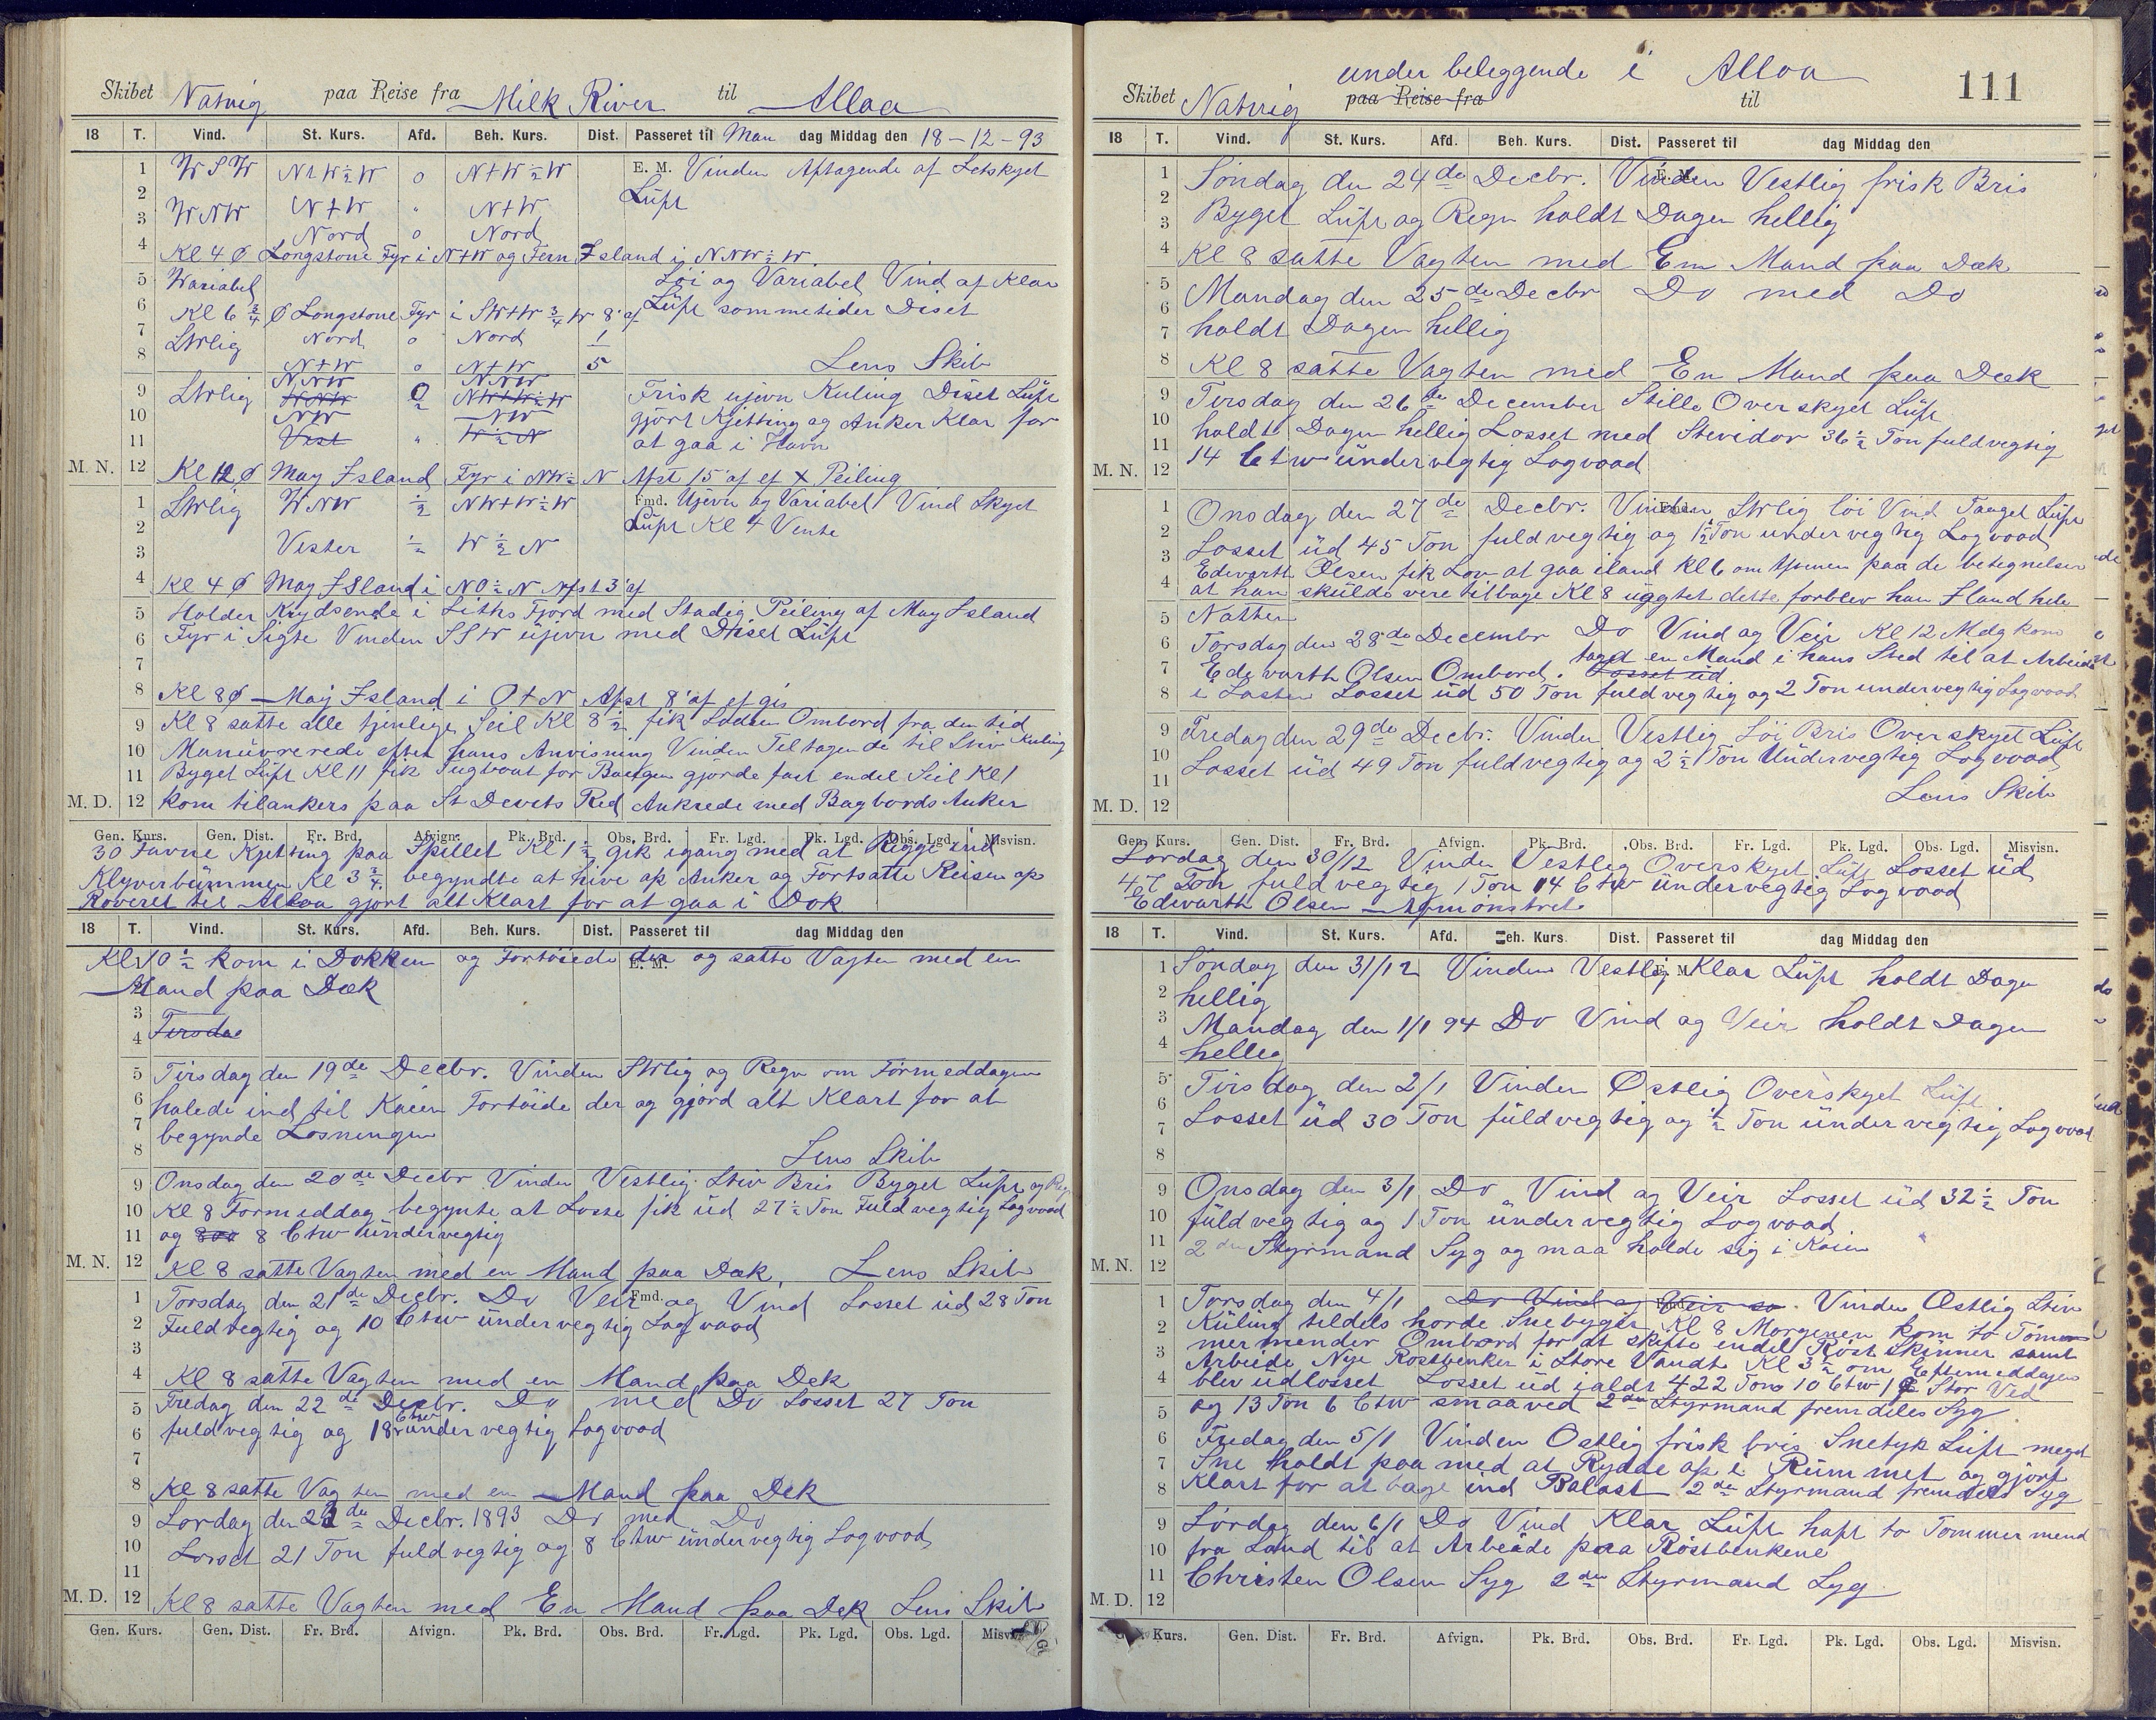 Skibet Natvig paa Reise fra Milk River til Alloa
18 T. Vind. St. Kurs. Afd. Beh. Kurs. Dist. Passeret til Man dag Middag den 18-12-93
1 WSW N+W½W 0 N+W½W E. M. Vinden Aftagende af Letskyet
2 Luft
3 WNW N+W " N+W
Nord 0 Nord
4 Kl 4 Ø Longstone Fyr i N+W og Fern Island i NNW½W
5 Wariabel Löi og Variabel Vind af Klar
6 Kl 6¾ Ø Longstone Fyr i SW+W¾W 8' af Luft sommetider Diset
7 SWlig Nord 0 Nord 1
8 N+W 0 N+W 5 Lens Skib
NNW NNW
9 SWlig WNW 0/2 NW+W½W Frisk ujevn Kuling Diset Luft
10 NW NW gjört Kjetting og Anker Klar for
11 Vest " W½N at gaa i Havn
M. N. 12 Kl 12 Ø May Island Fyr i NW½N Afst 15' af ef X Peiling
1 SWlig WNW ½ NW+W½W Fmd. Ujevn og Variabel Vind Skyet
2 Luft Kl 4 Vente
3 Vester ½ W½N
4 Kl 4 Ø May Island i NO½N Afst 3' af
5 Holder Krydsende i Liths Fjord med Stadig Peiling af May Island
6 Fyr i Sigte Vinden SSW ujevn med Diset Luft
7
8 Kl 8 Ø May Island i O+N Afst 8' af ef gis
9 Kl 8 satte alle tjenlige Seil Kl 8½ fik Lodsen Ombord fra den tid
10 Manuvrerede efter hans Anvisning Vinden Tiltagende til Stiv Kuling
11 Byget Luft Kl 11 fik Tugboat for Baugen gjörde fast endel Seil Kl 1
M. D. 12 kom tilankers paa St Devets Red Ankrede med Bagbords Anker
Gen. Kurs. Gen. Dist. Fr. Brd. Afvign. Pk. Brd. Obs. Brd. Fr. Lgd. Pk. Lgd. Obs. Lgd. Misvisn.
30 Favne Kjetting paa Spillet Kl 1½ gik igang med at Rigge ind
Klyverbummen Kl 3¾ begyndte at hive op Anker og Fortsatte Reisen op
Roveret til Alloa gjort alt Klart for at gaa i Dok
18 T. Vind. St. Kurs. Afd. Beh. Kurs. Dist. Passeret til dag Middag den
1 Kl 10½ kom i Dokken og Fortöiede der E. M. og satte Vagten med en
2 Mand paa Dæk
3
4 Tirsdag
5 Tirsdag den 19de Decbr. Vinden SWlig og Regn om Formeddagen
6 halede ind til Kaien Fortöide der og gjord alt Klart for at
7 begynde Losningen
8 Lens Skib
9 Onsdag den 20de Decbr Vinden Vestlig Stiv Bris Byget Luft og Regn
10 Kl 8 Formeddag begynte at Losse fik ud 27½ Ton Fuldvegtig Logvood
11 og 800 8 Ctw undervegtig
M. N. 12 Kl 8 satte Vagten med en Mand paa Dæk, Lens Skib
1 Torsdag den 21de Decbr. Do Veir Fmd. og Vind Losset ud 28 Ton
2 Fuldvegtig og 10 Ctw undervegtig Logvood
3
4 Kl 8 satte Vagten med en Mand paa Dek
5 Fredag den 22de Decbr. Do med Do Losset 27 Ton
6 fuldvegtig og 18 Ctw undervegtig Logvood
7
8 Kl 8 satte Vagten med en Mand paa Dek
9 Lordag den 23de Decbr. 1893 Do med Do
10 Losset 21 Ton fuldvegtig og 8 Ctw undervegtig Logvood
11
M. D. 12 Kl 8 satte Vagten med En Mand paa Dek Lens Skib
Gen. Kurs. Gen. Dist. Fr. Brd. Afvign. Pk. Brd. Obs. Brd. Fr. Lgd. Pk. Lgd. Obs. Lgd. Misvisn.
under beleggende i Alloa 111
Skibet Natvig paa Reise fra til
18 T. Vind. St. Kurs. Afd. Beh. Kurs. Dist. Passeret til dag Middag den
1 Söndag den 24de Decbr. Vinden E. M. Vestlig frisk Bris
2 Byget Luft og Regn holdt Dagen hellig
3
4 Kl 8 satte Vagten med Em Mand paa Dæk
5 Mandag den 25de Decbr Do med Do
6
7 holdt Dagen hellig
8 Kl 8 satte Vagten med En Mand paa Dæk
9 Tirsdag den 26de December Stille Overskyet Luft
10 holdt Dagen hellig Losset med Stevidor 36½ Ton fuldvegtig
11
M. N. 12 14 Ctw undervegtig Logvood
1 Onsdag den 27de Decbr. Vinden Fmd. SWlig löi Vind Taaget Luft
2 Losset ud 45 Ton fuldvegtig og 1½ Ton undervegtig Logvood
3 Edvarth Olsen fik Lov at gaa iland Kl 6 om Aftenen paa de betegnelser
4 at han skulde vere tilbage Kl 8 uagtet dette forblev han Iland hele
5 Natten
6 Torsdag den 28de Decembr Do Vind og Veir Kl 12 Mdg kom
7 Edevarth Olsen Ombord. Losset ud taget en Mand i hans Sted til at Arbeide
8 i Lasten Losset ud 50 Ton fuldvegtig og 2 Ton undervegtig Logvood
9 Fredag den 29de Decbr. Vinden Vestlig Löi Bris Overskyet Luft
10 Losset ud 49 Ton fuldvegtig og 2½ Ton Undervegtig Logvood
11 Lens Skib
M. D. 12
Gen. Kurs. Gen. Dist. Fr. Brd. Afvign. Pk. Brd. Obs. Brd. Fr. Lgd. Pk. Lgd. Obs. Lgd. Misvisn.
Lordag den 30/12 Vinden Vestlig Overskyet Luft Losset ud
47 Ton fuldvegtig 1 Ton 14 Ctw undervegtig Logvood
Edvarth Olsen Afmönstret
18 T. Vind. St. Kurs. Afd. Beh. Kurs. Dist. Passeret til dag Middag den
1 Söndag den 31/12 Vinden Vestlig E. M. Klar Luft holdt Dagen
2 hellig
3 Mandag den 1/1 94 Do Vind og Veir holdt Dagen
4 hellig
5 Tirsdag den 2/1 Vinden Østlig Overskyet Luft
6
7 Losset ud 30 Ton fuldvegtig og ½ Ton undervegtig Logvood
8
9 Onsdag den 3/1 Do Vind og Veir Losset ud 32½ Ton
10 fuldvegtig og 1 Ton undervegtig Logvood.
11 2den Styrmand Syg og maa holde sig i Koien
M. N. 12
1 Torsdag den 4/1 Do Vind og Veir so. Vinden Østlig Stiv
2 Kuling tildels horde Snebyger Kl 8 Morgenen kom to Töm
3 mermender Ombord for at skifte endel Röst Skinner samt
Arbeide Nye Rostbenker i Store Vandt Kl 3½ om Eftermeddagen
4 blev udlosset Losset ud ialdt 422 Tons 10 Ctw 1 Stor Ved
5 og 13 Ton 6 Ctw smaaved 2den Styrmand fremdeles Syg
6 Fredag den 5/1 Vinden Ostlig frisk bris Snetyk Luft meget
7 Sne holdt paa med at Rydde op i Rummet og gjort
8 Klart for at tage ind Balast 2den Styrmand fremdeles Syg
9 Lordag den 6/1 Do Vind Klar Luft haft to Tommermend
10 fra Land til at Arbeide paa Röstbenkene
11 Christen Olsen Syg 2den Styrmand Syg
M. D. 12
Kurs. Gen. Dist. Fr. Brd. Afvign. Pk. Brd. Obs. Brd. Fr. Lgd. Pk. Lgd. Obs. Lgd. Misvisn.